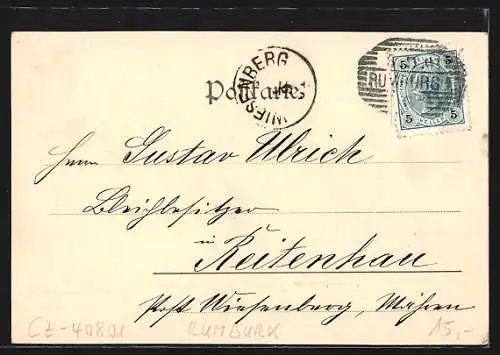 Postkarte.
WIESENBERG
RUMBURG
5 5
5 HELLER 5
Herrn Gustav Ulrich
Bleichbesitzer
in
Reitenhau
Post Wiesenberg, Mähren
CZ-40801 RUMBURK 15,-